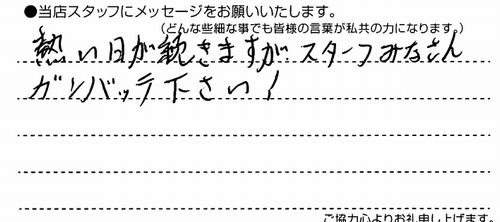 ●当店スタッフにメッセージをお願いいたします。
(どんな些細な事でも皆様の言葉が私共の力になります。)
熱い日が続きますが スタッフみなさん
ガンバッテ下さい!
ご協力心よりお礼申し上げます。